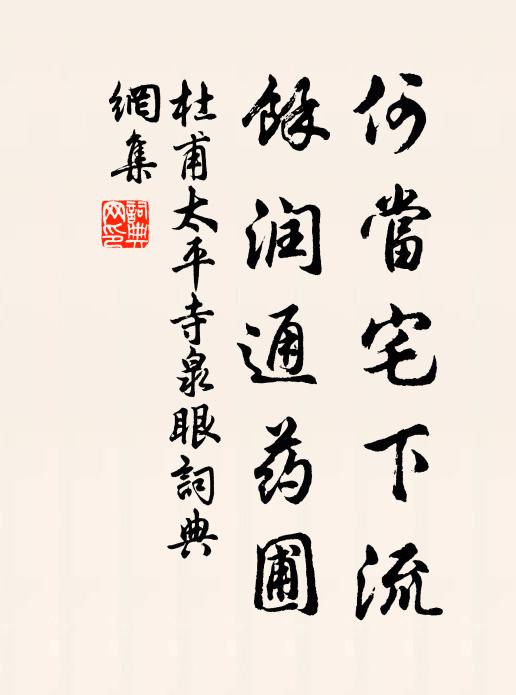 何當宅下流
餘润通药圃
杜甫太平寺泉眼詞典
網集
詞典
网印